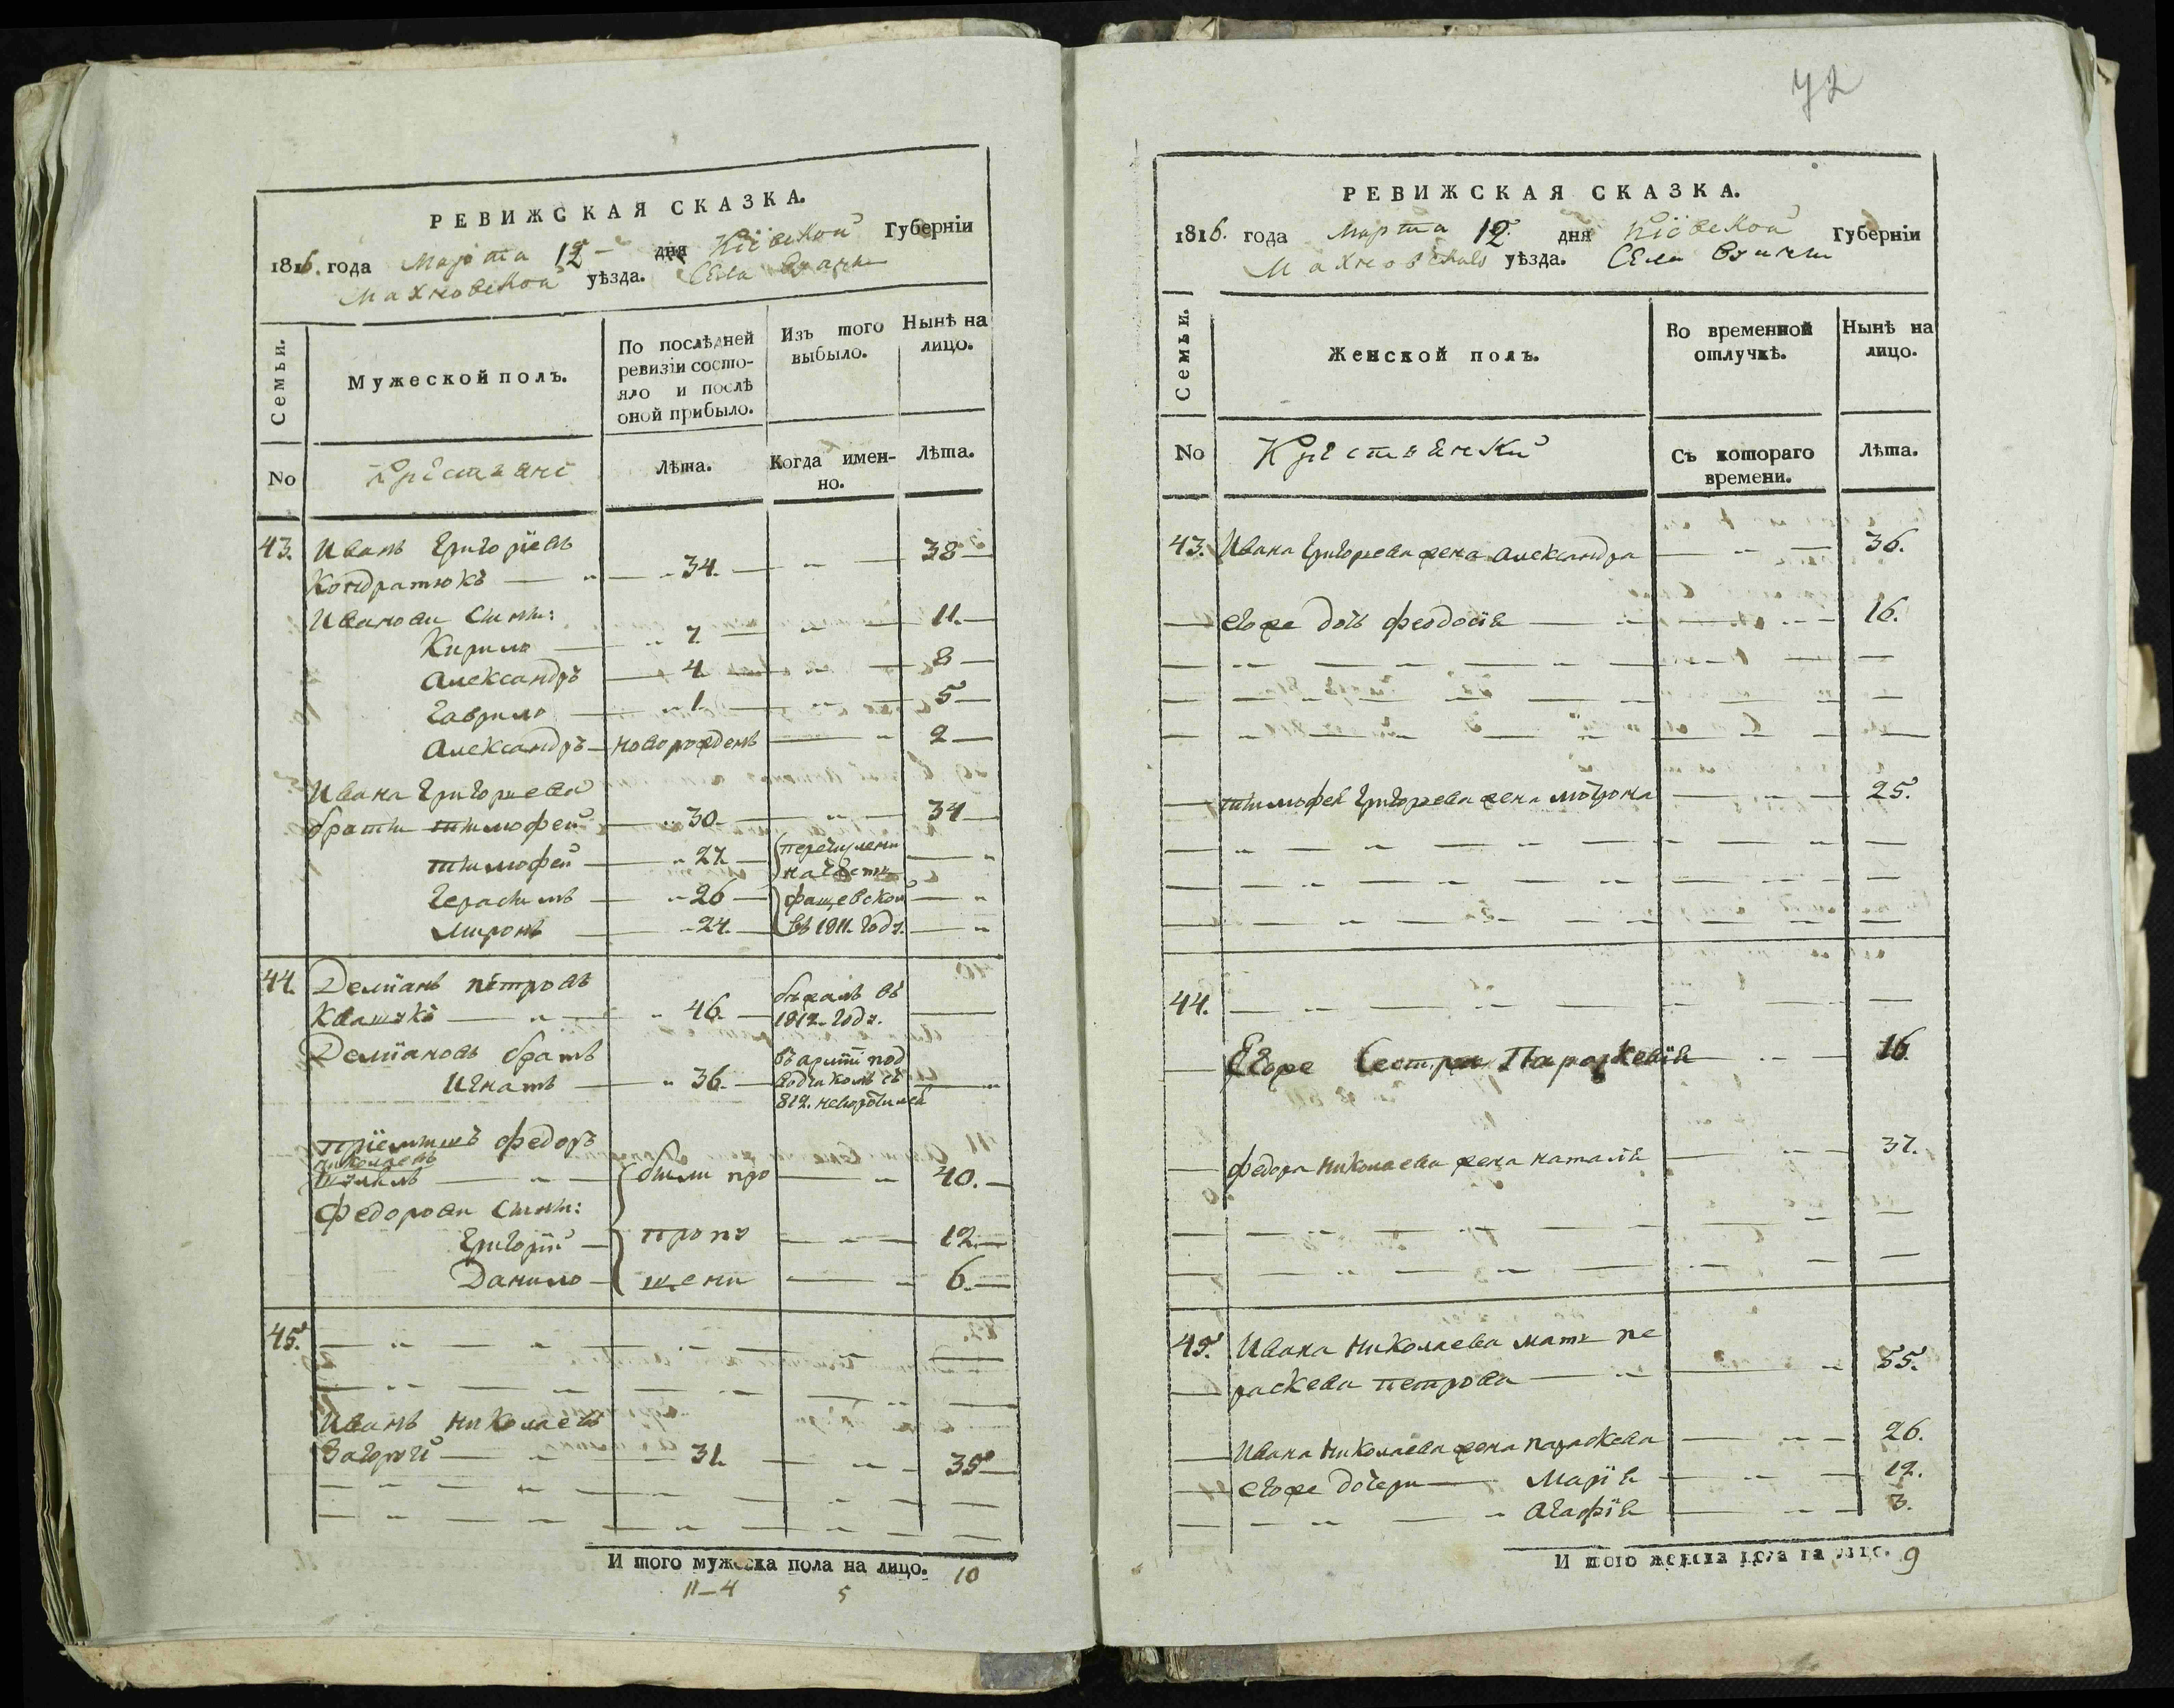 РЕВИЖСКАЯ СКАЗКА.
1816. года Марта 12 дня Кіевской Губерніи
Махновской уѣзда. Села
Семьи.
Мужеской полъ.
По послѣдней ревизіи состояло и послѣ оной прибыло.
Изъ того выбыло.
Нынѣ на лицо.
No
Крестьяне
Лѣта.
Когда именно.
Лѣта.
43. Иванъ Григорьевъ
Кондратюкъ 34. 38
Иванови Сыны:
Кирило 7 11.
Александръ 4 8
Гаврило 1 5
Александръ новорожденъ 2
Ивана Григориева
брати тимофей 30 34
тимофей 27 перечислени
на
Герасимъ 26 фащевской
Миронъ 24. въ 1811. году.
44. Демианъ петровъ бежалъ въ
46. 1812. году.
Демиановъ братъ
Игнатъ 36. 812.
приемышъ федоръ
николаевъ
были про 40.
Федорови Сыны:
Григорий пропу 12
Данило щени 6.
45.
Иванъ Николаевъ
31 35
И того мужеска пола на лицо. 10
11-4 5
72
РЕВИЖСКАЯ СКАЗКА.
1816. года Марта 12. дня Кіевской Губерніи
Махновскаго уѣзда. Села
Семьи.
Женской полъ.
Во временной отлучкѣ.
Нынѣ на лицо.
No
Крестьянки
Съ котораго времени.
Лѣта.
43. Ивана Григорьева жена Александра 36.
Егоже дочь феодосия 16.
тимофея Григорьева жена мотрона 25.
44.
Егоже Сестра Параскевия 16
федора Николаева жена наталия 37.
45. Ивана Николаева мать пе
раскева петрова 55.
Ивана Николаева жена параскева 26.
егоже дочери Мария 12.
Агафия 3.
И того женска пола на лицо. 9